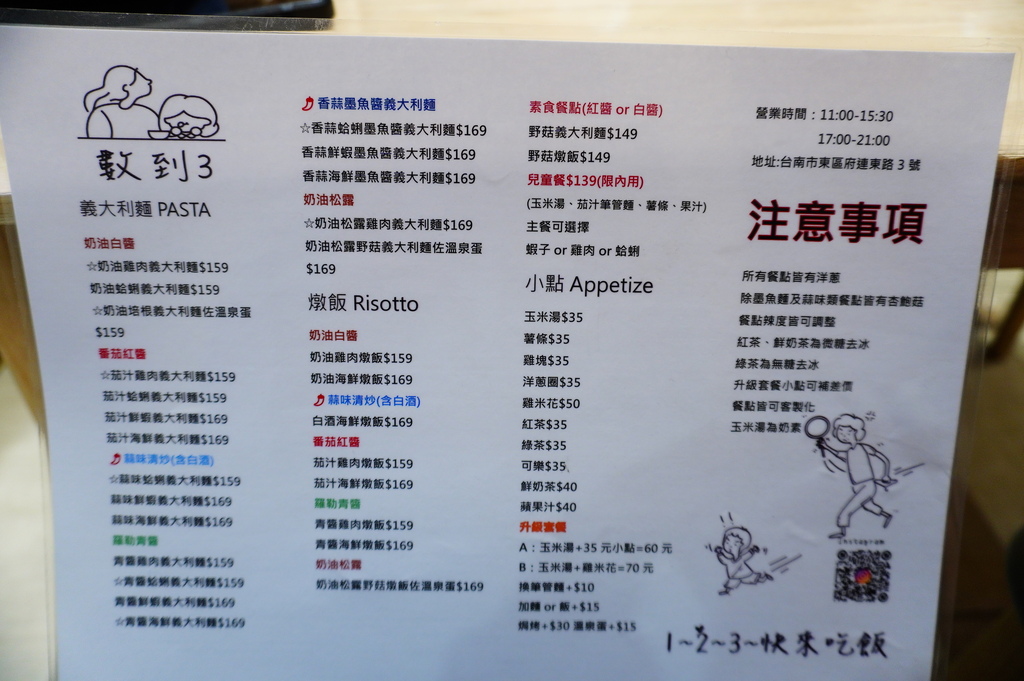 數到3
義大利麵 PASTA
奶油白醬
☆奶油雞肉義大利麵$159
奶油蛤蜊義大利麵$159
☆奶油培根義大利麵佐溫泉蛋
$159
番茄紅醬
☆茄汁雞肉義大利麵$159
茄汁蛤蜊義大利麵$159
茄汁鮮蝦義大利麵$169
茄汁海鮮義大利麵$169
蒜味清炒(含白酒)
☆蒜味蛤蜊義大利麵$159
蒜味鮮蝦義大利麵$169
蒜味海鮮義大利麵$169
羅勒青醬
青醬雞肉義大利麵$159
☆青醬蛤蜊義大利麵$159
青醬鮮蝦義大利麵$169
☆青醬海鮮義大利麵$169
香蒜墨魚醬義大利麵
☆香蒜蛤蜊墨魚醬義大利麵$169
香蒜鮮蝦墨魚醬義大利麵$169
香蒜海鮮墨魚醬義大利麵$169
奶油松露
☆奶油松露雞肉義大利麵$169
奶油松露野菇義大利麵佐溫泉蛋
$169
燉飯 Risotto
奶油白醬
奶油雞肉燉飯$159
奶油海鮮燉飯$169
蒜味清炒(含白酒)
白酒海鮮燉飯$169
番茄紅醬
茄汁雞肉燉飯$159
茄汁海鮮燉飯$169
羅勒青醬
青醬雞肉燉飯$159
青醬海鮮燉飯$169
奶油松露
奶油松露野菇燉飯佐溫泉蛋$169
素食餐點(紅醬 or 白醬)
野菇義大利麵$149
野菇燉飯$149
兒童餐$139(限內用)
(玉米湯、茄汁筆管麵、薯條、果汁)
主餐可選擇
蝦子 or 雞肉 or 蛤蜊
小點 Appetize
玉米湯$35
薯條$35
雞塊$35
洋蔥圈$35
雞米花$50
紅茶$35
綠茶$35
可樂$35
鮮奶茶$40
蘋果汁$40
升級套餐
A：玉米湯+35 元小點=60 元
B：玉米湯+雞米花=70 元
換筆管麵+$10
加麵 or 飯+$15
焗烤+$30 溫泉蛋+$15
營業時間：11:00-15:30
17:00-21:00
地址:台南市東區府連東路 3 號
注意事項
所有餐點皆有洋蔥
除墨魚麵及蒜味類餐點皆有杏鮑菇
餐點辣度皆可調整
紅茶、鮮奶茶為微糖去冰
綠茶為無糖去冰
升級套餐小點可補差價
餐點皆可客製化
玉米湯為奶素
instagram
1~2~3~快來吃飯